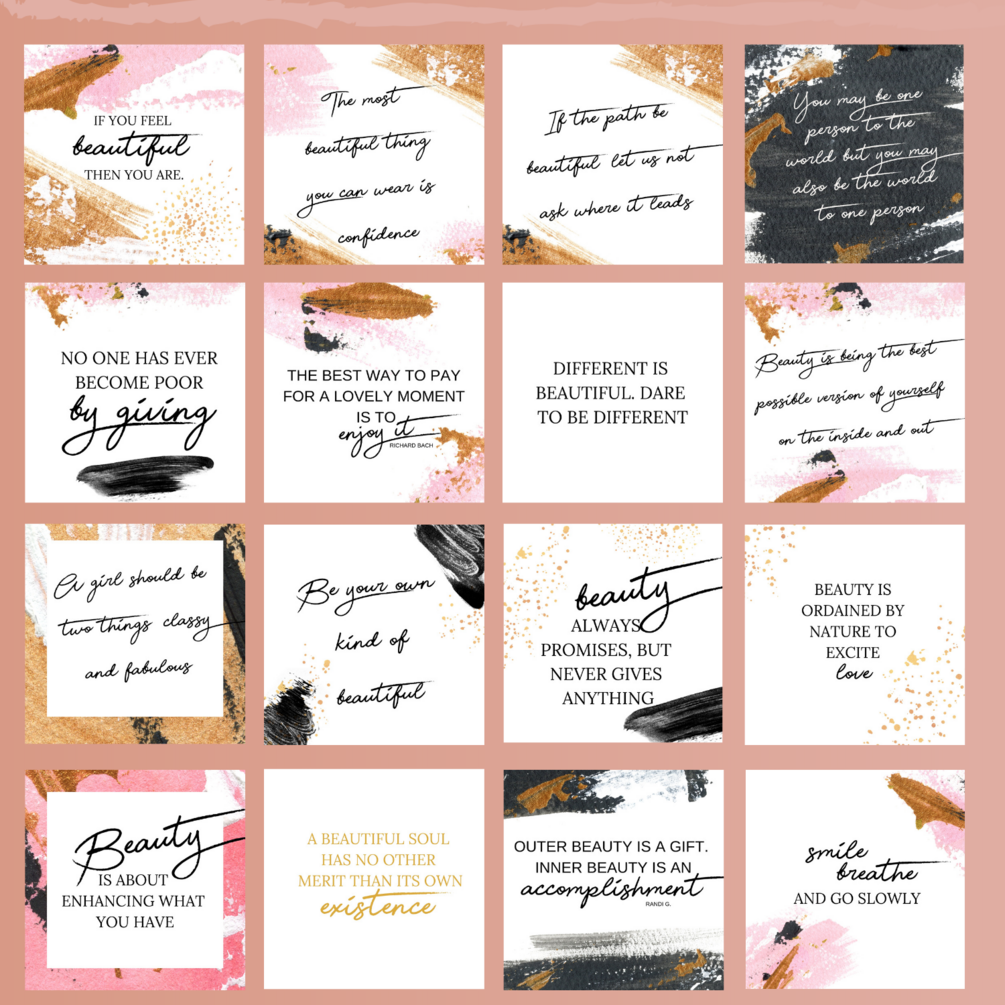 IF YOU FEEL
beautiful
THEN YOU ARE.
The most
beautiful thing
you can wear is
confidence
If the path be
beautiful let us not
ask where it leads
You may be one
person to the
world but you may
also be the world
to one person
NO ONE HAS EVER
BECOME POOR
by giving
THE BEST WAY TO PAY
FOR A LOVELY MOMENT
IS TO
enjoy it
RICHARD BACH
DIFFERENT IS
BEAUTIFUL. DARE
TO BE DIFFERENT
Beauty is being the best
possible version of yourself
on the inside and out
A girl should be
two things classy
and fabulous
Be your own
kind of
beautiful
beauty
ALWAYS
PROMISES, BUT
NEVER GIVES
ANYTHING
BEAUTY IS
ORDAINED BY
NATURE TO
EXCITE
love
Beauty
IS ABOUT
ENHANCING WHAT
YOU HAVE
A BEAUTIFUL SOUL
HAS NO OTHER
MERIT THAN ITS OWN
existence
OUTER BEAUTY IS A GIFT.
INNER BEAUTY IS AN
accomplishment
RANDI G.
smile
breathe
AND GO SLOWLY